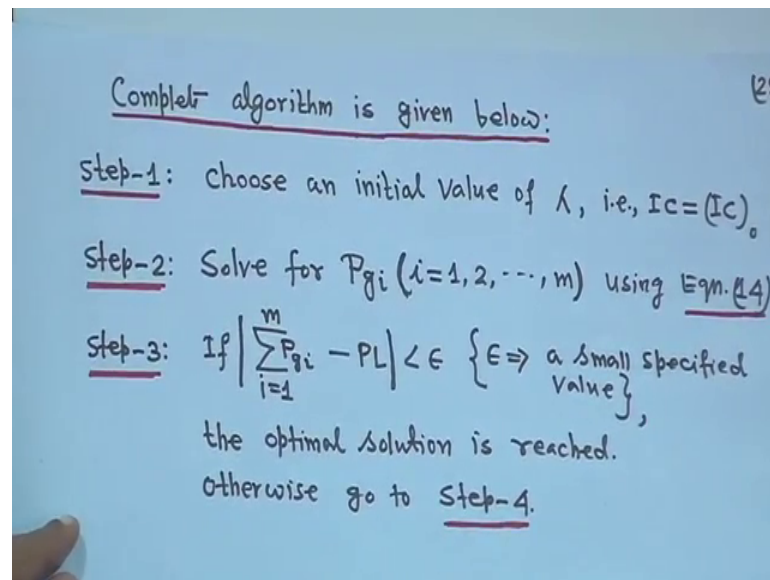 Complet algorithm is given below:
Step-1: Choose an initial value of λ, i.e., IC = (IC)₀
Step-2: Solve for Pgi (i=1, 2, ..., m) using Eqn.(14)
Step-3: If |∑_{i=1}^{m} Pgi - PL| < ϵ {ϵ ⇒ a small specified
value},
the optimal solution is reached.
Otherwise go to Step-4.